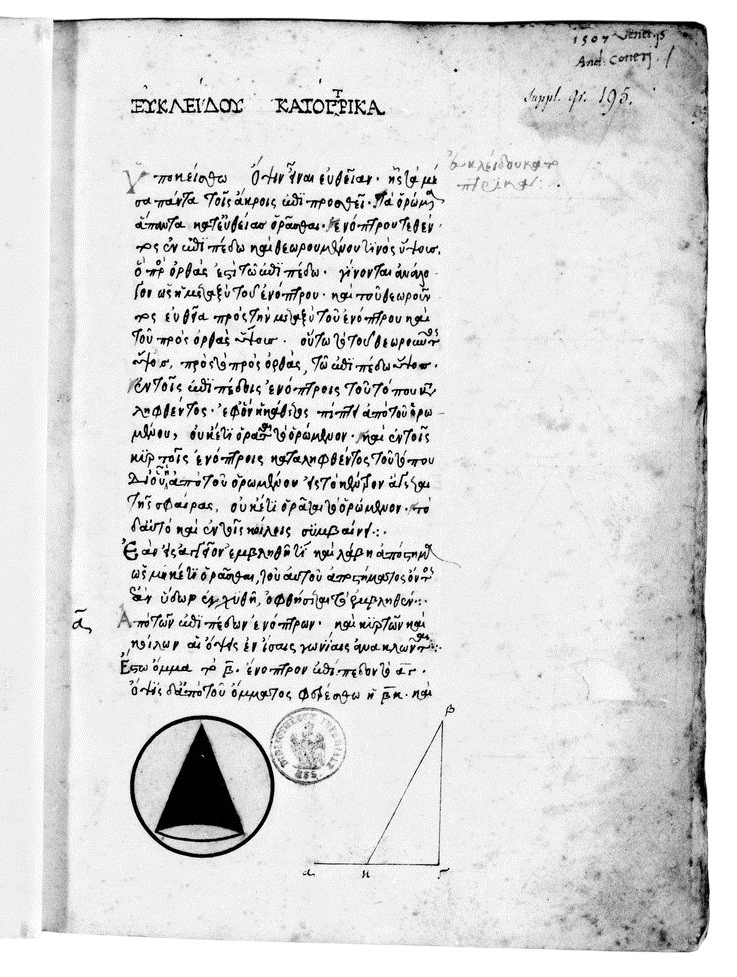 1507 Venetijs
And. Conerj.
Suppl. gr. 195.
ΕΥΚΛΕΙΔΟΥ ΚΑΤΟΠΤΡΙΚΑ
εὐκλείδου κατο
πτρικα:
Ὑποκείσθω ὄψιν εἶναι εὐθεῖαν· ἧς τὰ μέ
σα πάντα τοῖς ἄκροις ἐπιπροσθεῖ. Τὰ ὁρώμενα
ἅπαντα κατευθείας ὁρᾶσθαι· ἐνόπτρου τεθέν
τος ἐν ἐπιπέδω καὶ θεωρουμένου τινὸς ὕψους.
ὃ πρὸς ὀρθάς ἐστὶ τῶ ἐπιπέδω. γίνονται ἀνάλο
γον ὡς ἡ μεταξὺ τοῦ ἐνόπτρου. καὶ τοῦ θεωροῦν
τος εὐθεῖα πρὸς τὴν μεταξὺ τοῦ ἐνόπτρου καὶ
τοῦ πρὸς ὀρθὰς ὕψους. οὕτω τὸ τοῦ θεωροῦντος
ὕψος, πρὸς τὸ πρὸς ὀρθὰς, τῶ ἐπιπέδω ὕψος.
ἐν τοῖς ἐπιπέδοις ἐνόπτροις τοῦ τόπου κατα
ληφθέντος· ἐφ' ὃν ἡ κάθετος πίπτει ἀπὸ τοῦ ὁρω
μένου, οὐκέτι ὁρᾶται τὸ ὁρώμενον· καὶ ἐν τοῖς
κυρτοῖς ἐνόπτροις καταληφθέντος τοῦ τόπου
δι' οὗ ἀπὸ τοῦ ὁρωμένου εἰς τὸ κέντρον ἄγεται
τῆς σφαίρας, οὐκέτι ὁρᾶται τὸ ὁρώμενον. τὸ
δ' αὐτὸ καὶ ἐν τοῖς κοίλοις συμβαίνει:
Ἐὰν εἰς ἀγγεῖον ἐμβληθῆ τί καὶ λάβη ἀπόστημα
ὡς μηκέτι ὁρᾶσθαι, τοῦ αὐτοῦ ἀποστήματος ὄντος
ἐὰν ὕδωρ ἐγχυθῆ, ὀφθήσεται τὸ ἐμβληθέν:
ᾱ Ἀπὸ τῶν ἐπιπέδων ἐνόπτρων· καὶ κυρτῶν καὶ
κοίλων αἱ ὄψεις ἐν ἴσαις γωνίαις ἀνακλῶνται:
Ἔστω ὄμμα τὸ β̄. ἔνοπτρον ἐπίπεδον τὸ ᾱγ̄.
ὄψις δ' ἀπὸ τοῦ ὄμματος φερέσθω ἡ β̄κ̄. καὶ
BIBLIOTHÈQUE IMPÉRIALE
MSS.
β
α κ γ